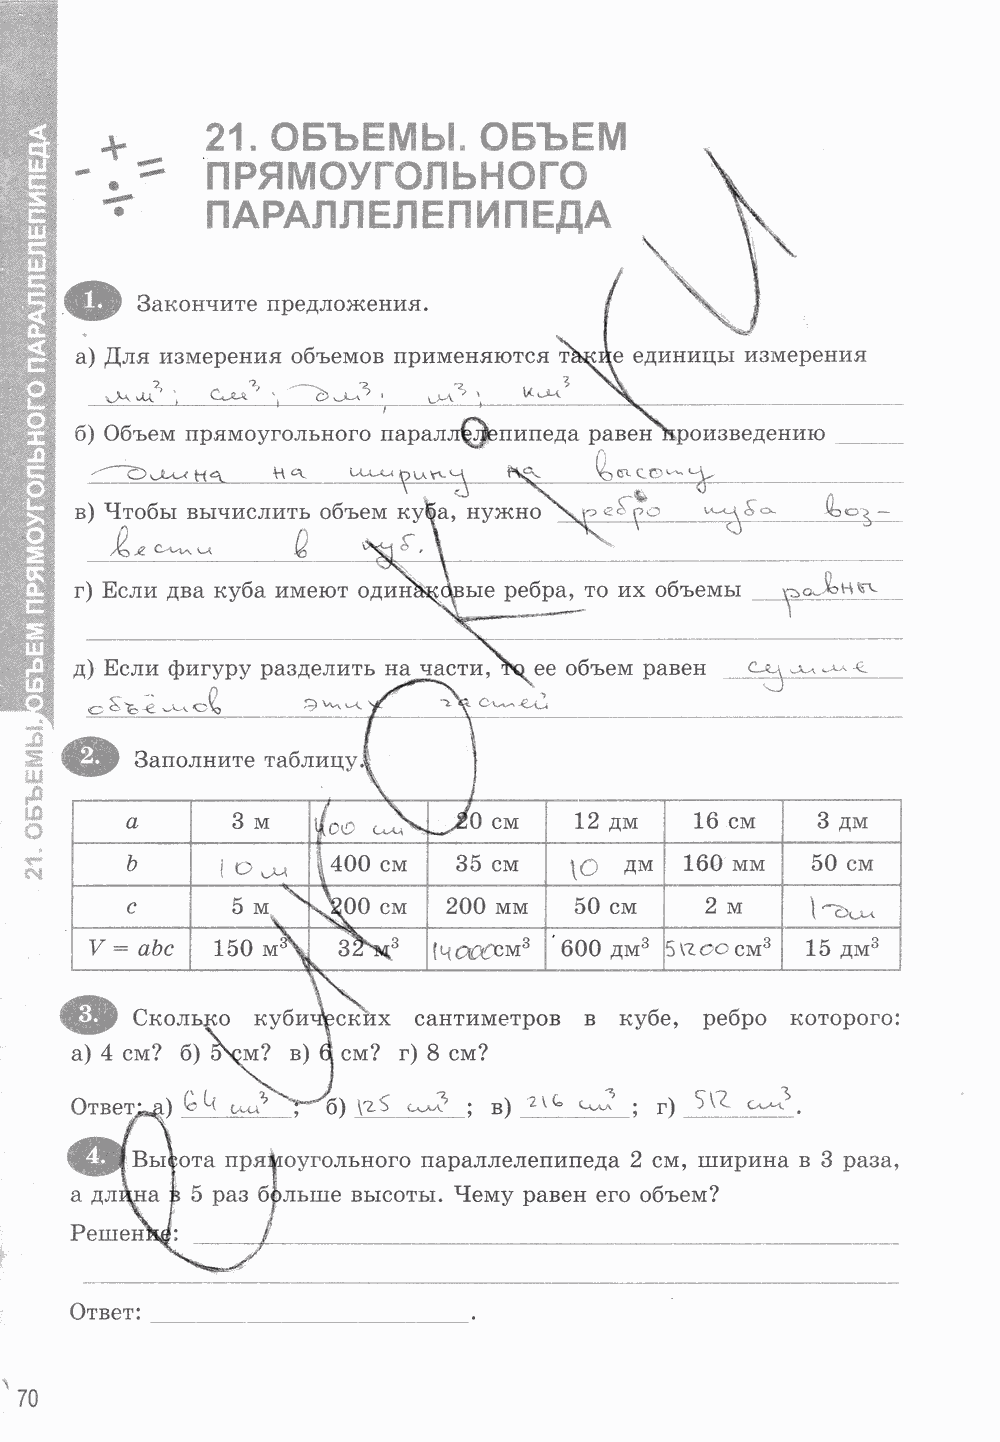 21. ОБЪЕМЫ. ОБЪЕМ ПРЯМОУГОЛЬНОГО ПАРАЛЛЕЛЕПИПЕДА
- + ÷ =
21. ОБЪЕМЫ. ОБЪЕМ
ПРЯМОУГОЛЬНОГО
ПАРАЛЛЕЛЕПИПЕДА
1. Закончите предложения.
а) Для измерения объемов применяются такие единицы измерения
мм³; см³; дм³; м³; км³
б) Объем прямоугольного параллелепипеда равен произведению
длина на ширину на высоту
в) Чтобы вычислить объем куба, нужно ребро куба воз-
вести в куб.
г) Если два куба имеют одинаковые ребра, то их объемы равны
д) Если фигуру разделить на части, то ее объем равен сумме
объёмов этих частей
2. Заполните таблицу.
a 3 м 400 см 20 см 12 дм 16 см 3 дм
b 10 м 400 см 35 см 10 дм 160 мм 50 см
c 5 м 200 см 200 мм 50 см 2 м 1 дм
V = abc 150 м³ 32 м³ 14000 см³ 600 дм³ 51200 см³ 15 дм³
3. Сколько кубических сантиметров в кубе, ребро которого:
а) 4 см? б) 5 см? в) 6 см? г) 8 см?
Ответ: а) 64 см³; б) 125 см³; в) 216 см³; г) 512 см³.
4. Высота прямоугольного параллелепипеда 2 см, ширина в 3 раза,
а длина в 5 раз больше высоты. Чему равен его объем?
Решение:
Ответ: .
70